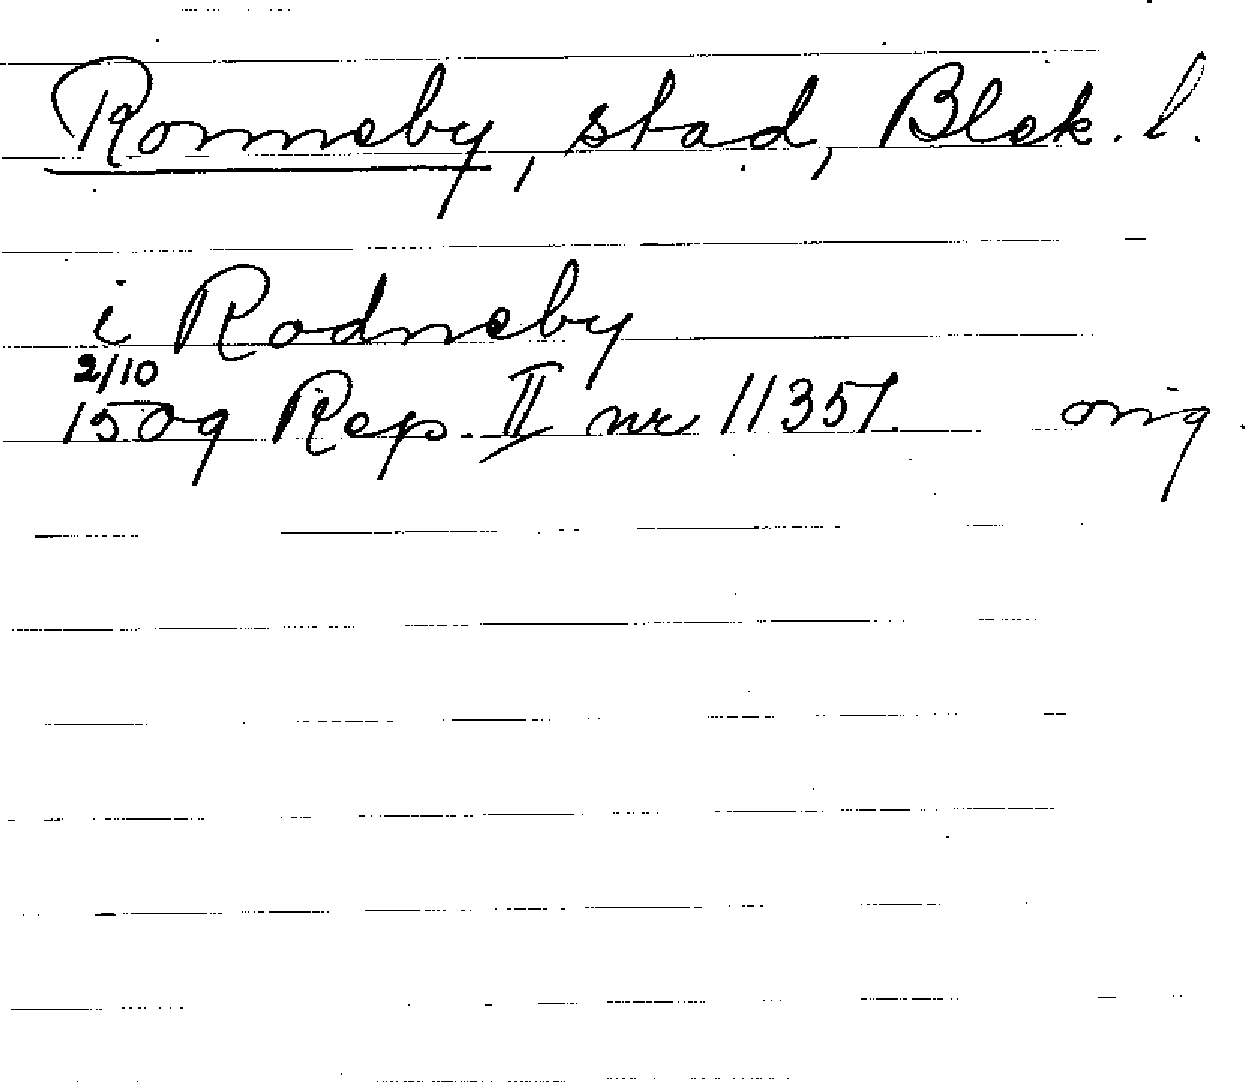 Ronneby, stad, Blek. l.
i Rodneby
2/10
1509 Rep. II nr 11357. orig.